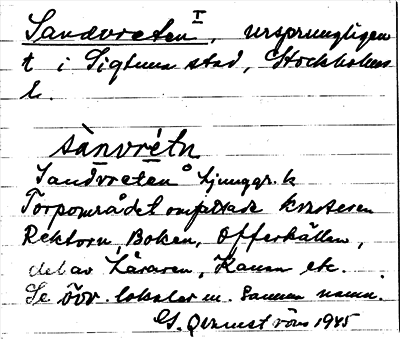 Sandvreten I, ursprungligen
t i Sigtuna stad, Stockholms
l.
sànvrétn
Sandvreten Ljunggr. k
Torpområdet omfattade kvarteren
Rektorn, Boken, Offerkällan,
del av Läraren, Kanan etc.
Se övr. lokaler m. samma namn.
G. 1945